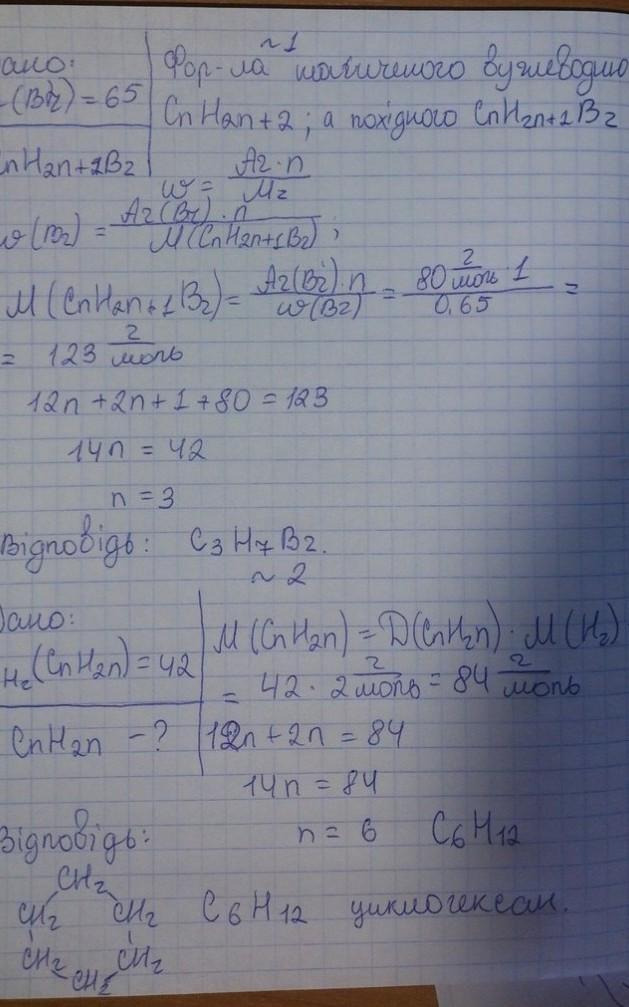 ~1
ано:
(Br) = 65
CnH2n+1Br
Фор-ла насиченого вуглеводню
CnH2n+2; а похідного CnH2n+1Br
w = Ar·n / Mr
w(Br) = Ar(Br)·n / M(CnH2n+1Br);
M(CnH2n+1Br) = Ar(Br)·n / w(Br) = 80 г/моль · 1 / 0,65 =
= 123 г/моль
12n + 2n + 1 + 80 = 123
14n = 42
n = 3
Відповідь: C3H7Br.
~2
Дано:
H2(CnH2n) = 42
CnH2n - ?
M(CnH2n) = D(CnH2n) · M(H2)
= 42 · 2 г/моль = 84 г/моль
12n + 2n = 84
14n = 84
n = 6 C6H12
Відповідь:
CH2
CH2 CH2 C6H12 циклогексан.
CH2 CH2
CH2